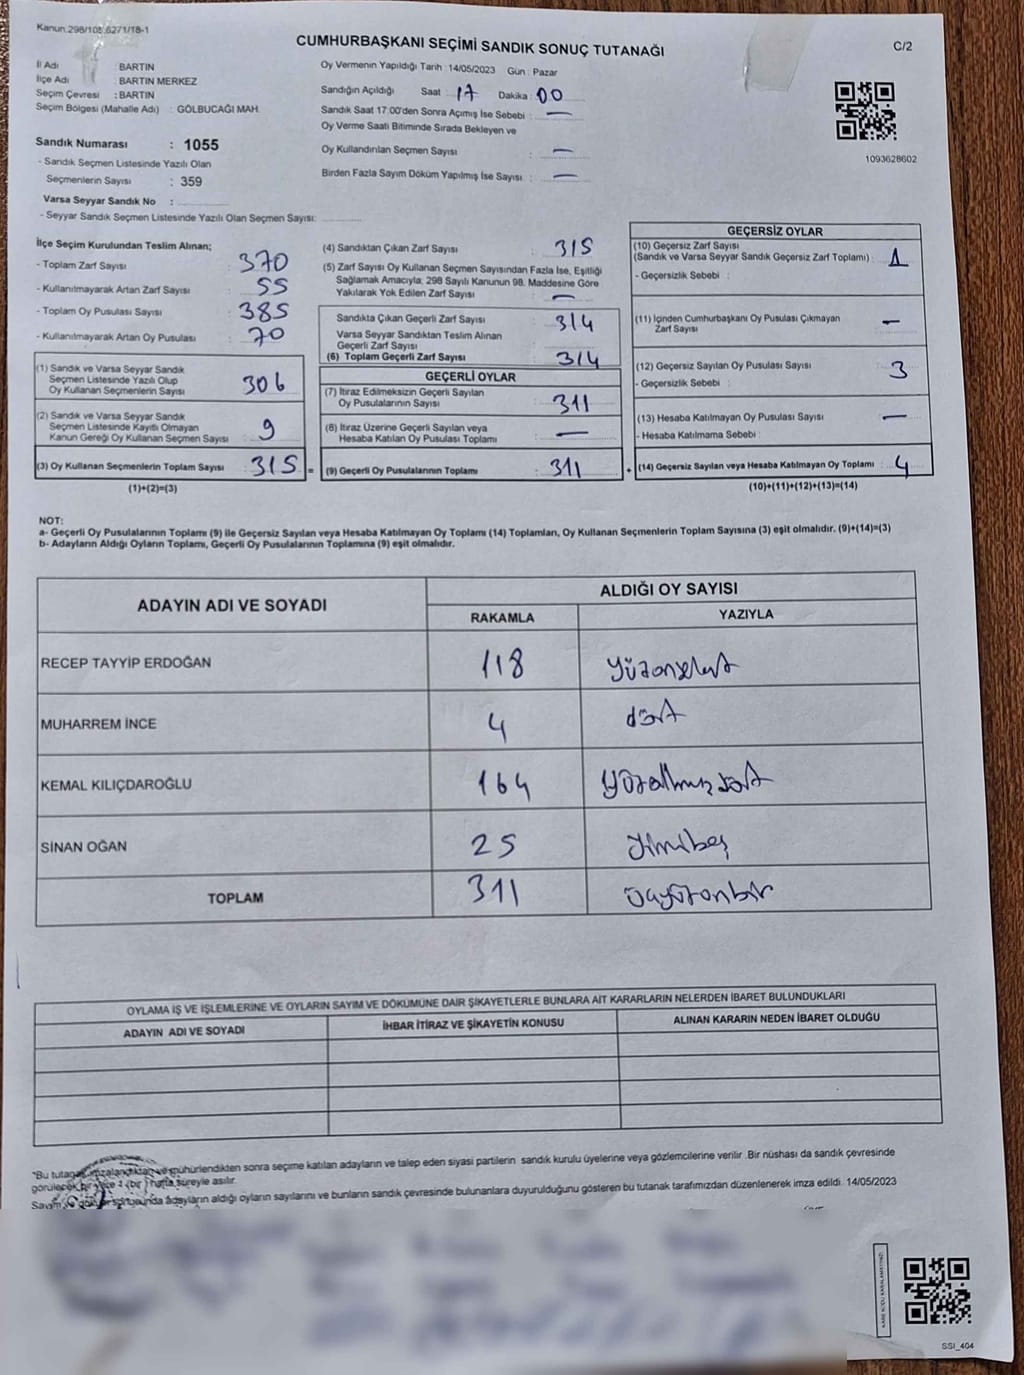 Kanun:298/105,6271/18-1
CUMHURBAŞKANI SEÇİMİ SANDIK SONUÇ TUTANAĞI
C/2
İl Adı : BARTIN
İlçe Adı : BARTIN MERKEZ
Seçim Çevresi : BARTIN
Seçim Bölgesi (Mahalle Adı) : GÖLBUCAĞI MAH.
Sandık Numarası : 1055
- Sandık Seçmen Listesinde Yazılı Olan
Seçmenlerin Sayısı : 359
Varsa Seyyar Sandık No :
- Seyyar Sandık Seçmen Listesinde Yazılı Olan Seçmen Sayısı:
Oy Vermenin Yapıldığı Tarih : 14/05/2023 Gün : Pazar
Sandığın Açıldığı Saat : 17 Dakika : 00
Sandık Saat 17:00'den Sonra Açımış İse Sebebi : —
Oy Verme Saati Bitiminde Sırada Bekleyen ve
Oy Kullandırılan Seçmen Sayısı : —
Birden Fazla Sayım Döküm Yapılmış İse Sayısı : —
1093628602
İlçe Seçim Kurulundan Teslim Alınan;
- Toplam Zarf Sayısı : 370
- Kullanılmayarak Artan Zarf Sayısı : 55
- Toplam Oy Pusulası Sayısı : 385
- Kullanılmayarak Artan Oy Pusulası : 70
(1) Sandık ve Varsa Seyyar Sandık
Seçmen Listesinde Yazılı Olup
Oy Kullanan Seçmenlerin Sayısı : 306
(2) Sandık ve Varsa Seyyar Sandık
Seçmen Listesinde Kayıtlı Olmayan
Kanun Gereği Oy Kullanan Seçmen Sayısı : 9
(3) Oy Kullanan Seçmenlerin Toplam Sayısı : 315 =
(1)+(2)=(3)
(4) Sandıktan Çıkan Zarf Sayısı : 315
(5) Zarf Sayısı Oy Kullanan Seçmen Sayısından Fazla İse, Eşitliği
Sağlamak Amacıyla; 298 Sayılı Kanunun 98. Maddesine Göre
Yakılarak Yok Edilen Zarf Sayısı : —
Sandıkta Çıkan Geçerli Zarf Sayısı : 314
Varsa Seyyar Sandıktan Teslim Alınan
Geçerli Zarf Sayısı :
(6) Toplam Geçerli Zarf Sayısı : 314
GEÇERLİ OYLAR
(7) İtiraz Edilmeksizin Geçerli Sayılan
Oy Pusulalarının Sayısı : 311
(8) İtiraz Üzerine Geçerli Sayılan veya
Hesaba Katılan Oy Pusulası Toplamı : —
(9) Geçerli Oy Pusulalarının Toplamı : 311 +
GEÇERSİZ OYLAR
(10) Geçersiz Zarf Sayısı
(Sandık ve Varsa Seyyar Sandık Geçersiz Zarf Toplamı) : 1
- Geçersizlik Sebebi :
(11) İçinden Cumhurbaşkanı Oy Pusulası Çıkmayan
Zarf Sayısı : —
(12) Geçersiz Sayılan Oy Pusulası Sayısı : 3
- Geçersizlik Sebebi :
(13) Hesaba Katılmayan Oy Pusulası Sayısı : —
- Hesaba Katılmama Sebebi :
(14) Geçersiz Sayılan veya Hesaba Katılmayan Oy Toplamı : 4
(10)+(11)+(12)+(13)=(14)
NOT:
a- Geçerli Oy Pusulalarının Toplamı (9) ile Geçersiz Sayılan veya Hesaba Katılmayan Oy Toplamı (14) Toplamları, Oy Kullanan Seçmenlerin Toplam Sayısına (3) eşit olmalıdır. (9)+(14)=(3)
b- Adayların Aldığı Oyların Toplamı, Geçerli Oy Pusulalarının Toplamına (9) eşit olmalıdır.
ADAYIN ADI VE SOYADI
ALDIĞI OY SAYISI
RAKAMLA YAZIYLA
RECEP TAYYİP ERDOĞAN 118 yüzonsekiz
MUHARREM İNCE 4 dört
KEMAL KILIÇDAROĞLU 164 yüzaltmışdört
SİNAN OĞAN 25 yirmibeş
TOPLAM 311 üçyüzonbir
OYLAMA İŞ VE İŞLEMLERİNE VE OYLARIN SAYIM VE DÖKÜMÜNE DAİR ŞİKAYETLERLE BUNLARA AİT KARARLARIN NELERDEN İBARET BULUNDUKLARI
ADAYIN ADI VE SOYADI İHBAR İTİRAZ VE ŞİKAYETİN KONUSU ALINAN KARARIN NEDEN İBARET OLDUĞU
"Bu tutanak imzalandıktan ve mühürlendikten sonra seçime katılan adayların ve talep eden siyasi partilerin sandık kurulu üyelerine veya gözlemcilerine verilir .Bir nüshası da sandık çevresinde
görülecek bir yere 1 (bir) hafta süreyle asılır.
Sayım sonucunda adayların aldığı oyların sayılarını ve bunların sandık çevresinde bulunanlara duyurulduğunu gösteren bu tutanak tarafımızdan düzenlenerek imza edildi. 14/05/2023
KARE KODU KARALAMAYINIZ!
SSI_404